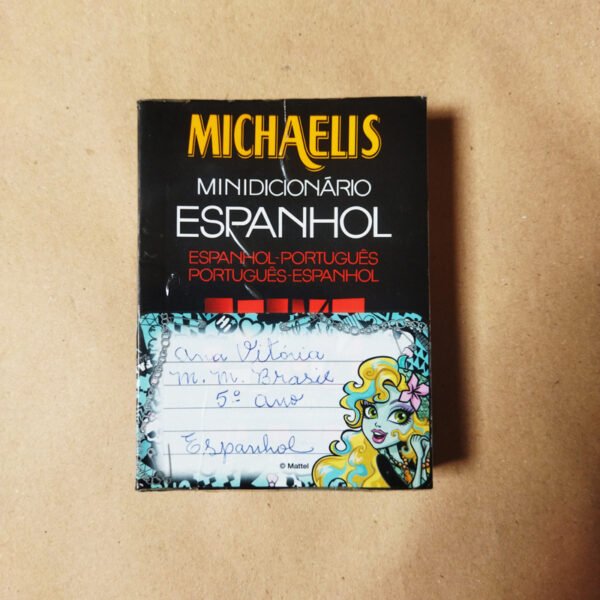 MICHAELIS
MINIDICIONÁRIO
ESPANHOL
ESPANHOL-PORTUGUÊS
PORTUGUÊS-ESPANHOL
Ana Vitória
M. M. Brasil
5º ano
Espanhol
© Mattel